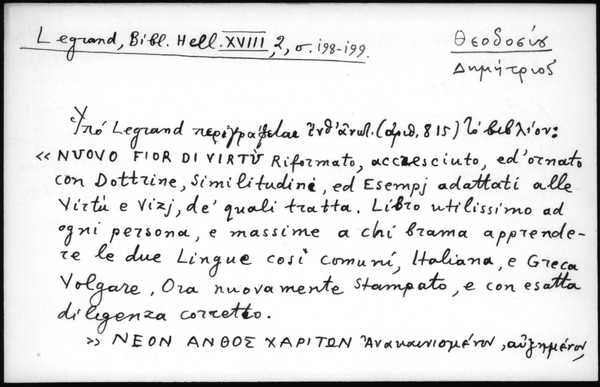 Legrand, Bibl. Hell. XVIII, 2, σ. 198-199.
Θεοδοσίου
Δημήτριος
Ὑπό Legrand περιγράφεται ἔνθ' ἀνωτ. (ἀριθ. 815) τὸ βιβλίον:
« NUOVO FIOR DI VIRTÙ Riformato, accresciuto, ed' ornato
con Dottrine, similitudini, ed Esempj adattati alle
Virtù e Vizj, de' quali tratta. Libro utilissimo ad
ogni persona, e massime a chi brama apprende-
re le due Lingue così comuni, Italiana, e Greca
Volgare, Ora nuovamente stampato, e con esatta
diligenza corretto.
» ΝΕΟΝ ΑΝΘΟΣ ΧΑΡΙΤΩΝ Ἀνακαινισμένον, αὐξημένον,